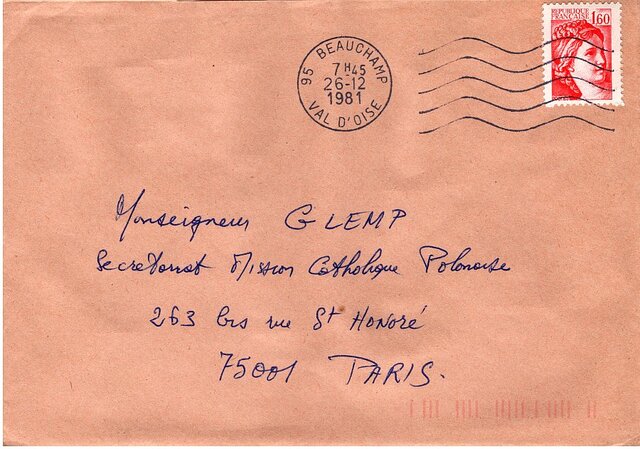 RÉPUBLIQUE
FRANÇAISE
1,60
95 BEAUCHAMP
7H45
26-12
1981
VAL D'OISE
Monseigneur GLEMP
Secretariat Mission Catholique Polonaise
263 bis rue St Honoré
75001 PARIS.